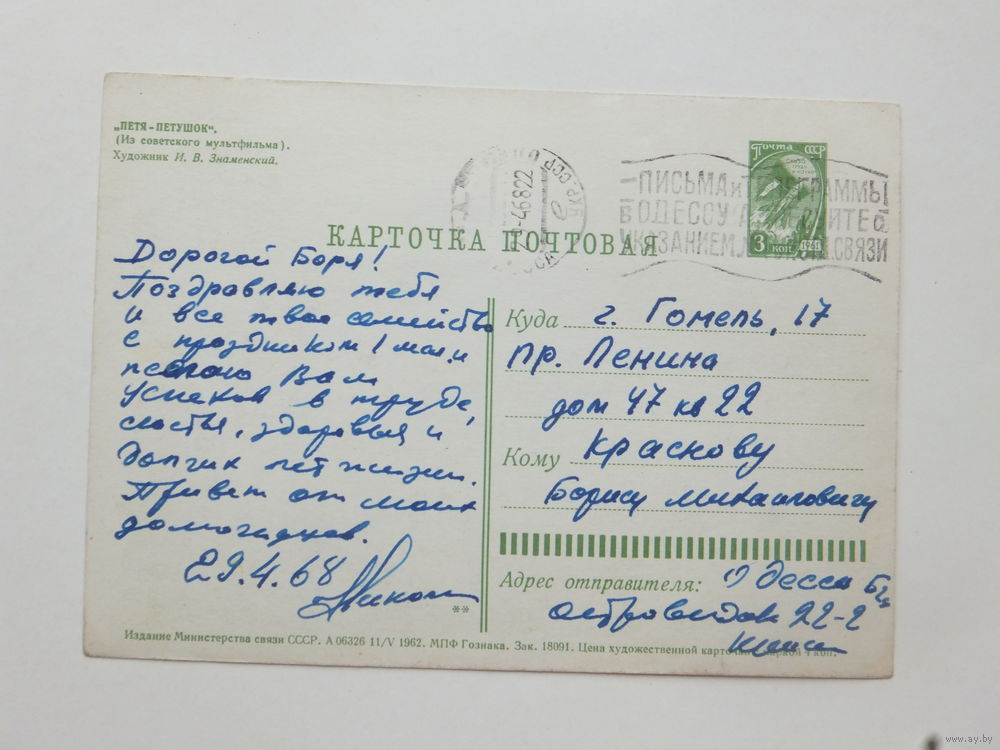 „ПЕТЯ-ПЕТУШОК".
(Из советского мультфильма).
Художник И. В. Знаменский.
Почта СССР
3 КОП 1961
ПИСЬМА и
В ОДЕССУ
УКАЗАНИЕМ СВЯЗИ
КАРТОЧКА ПОЧТОВАЯ
Дорогой Боря!
Поздравляю тебя
и все твое семейство
с праздником 1 мая и
Вам
успехов в труде,
счастья, здоровья и
долгих лет жизни.
Привет от моих
домочадцев.
29.4.68
Куда г. Гомель, 17
пр. Ленина
дом 47 кв 22
Кому Краскову
Борису Михайловичу
Адрес отправителя: Одесса
Островидова 22-2
**
Издание Министерства связи СССР. А 06326 11/V 1962. МПФ Гознака. Зак. 18091. Цена художественной карточки с маркой 4 коп.
www.ay.by